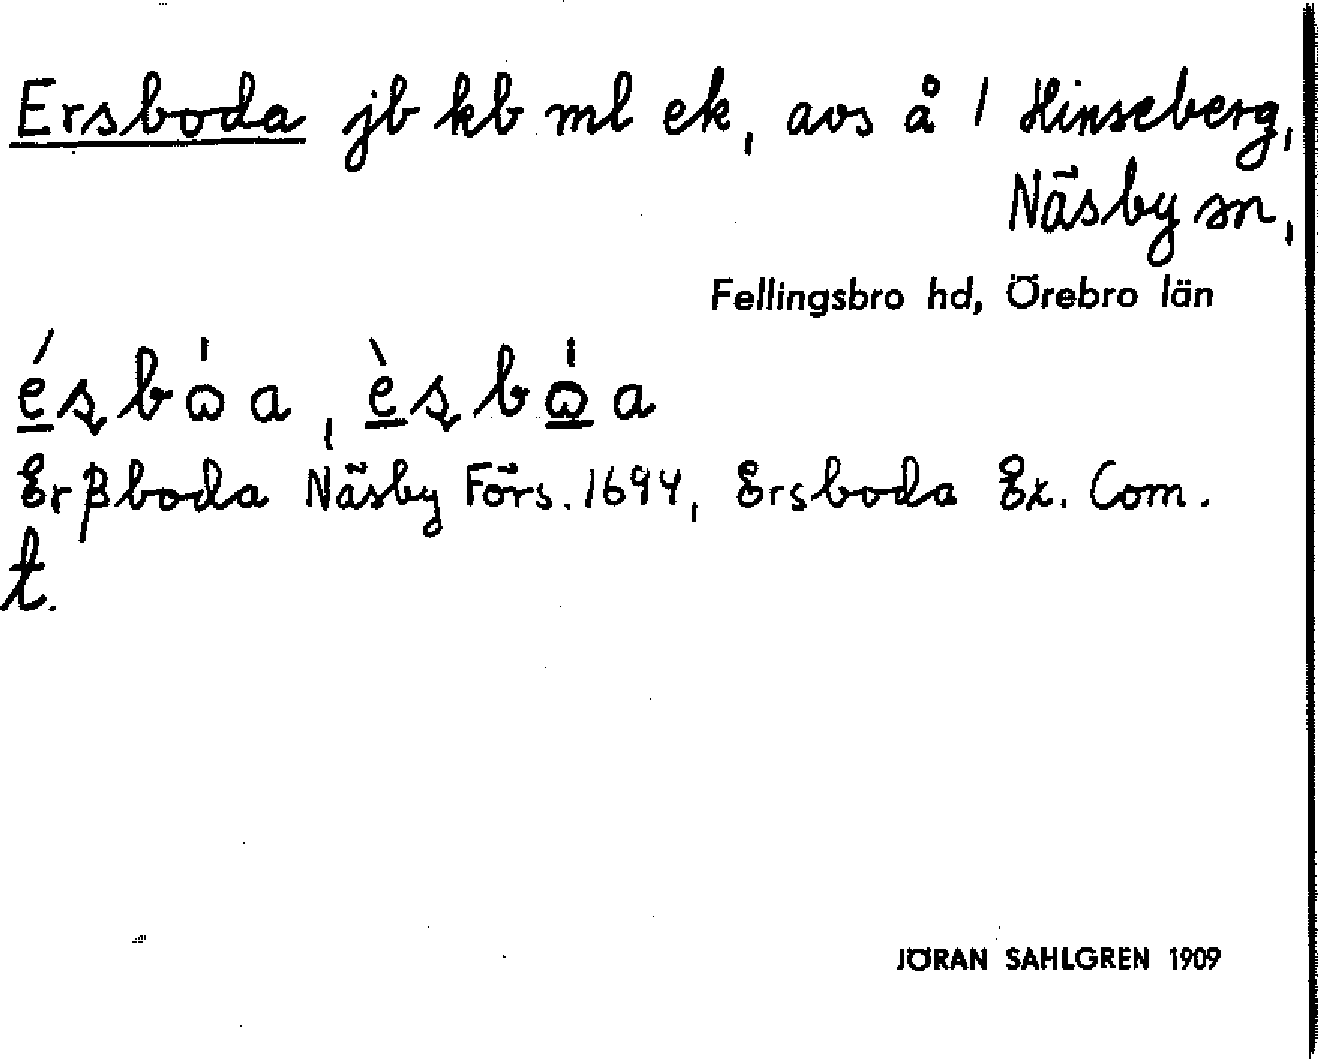 Ersboda jb kb ml ek, avs å / Hinseberg,
Näsby sn,
Fellingsbro hd, Örebro län
é̲ʂbὠa, è̲ʂbὠ̲a
Erßboda Näsby Förs. 1694, Ersboda Ex. Com.
t.
JÖRAN SAHLGREN 1909